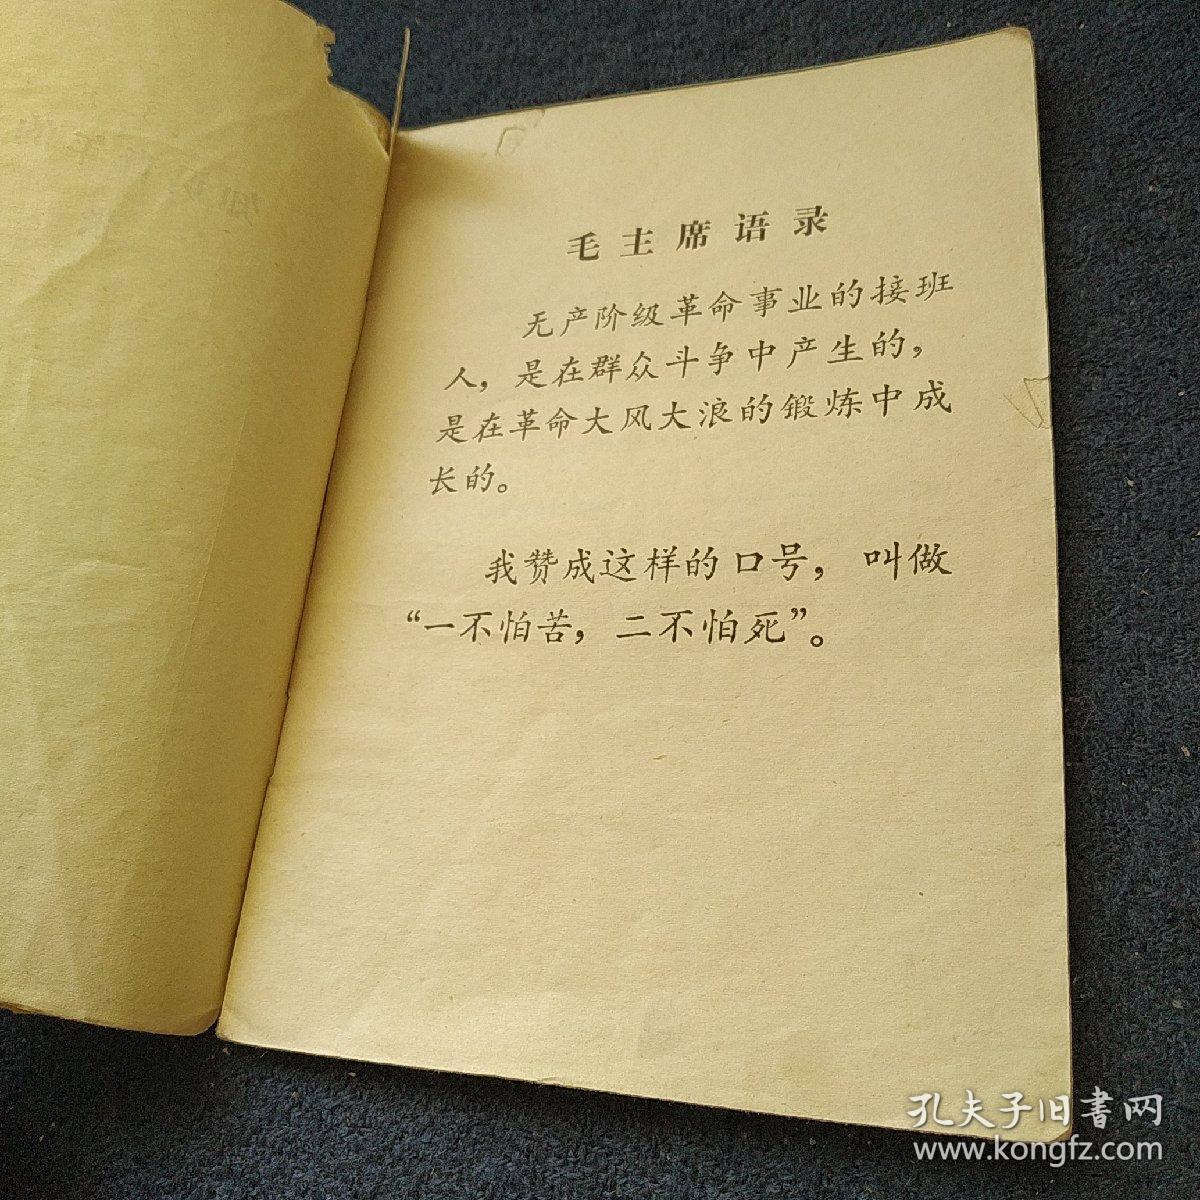 毛主席语录
无产阶级革命事业的接班
人，是在群众斗争中产生的，
是在革命大风大浪的锻炼中成
长的。
我赞成这样的口号，叫做
“一不怕苦，二不怕死”。
孔夫子旧书网
www.kongfz.com